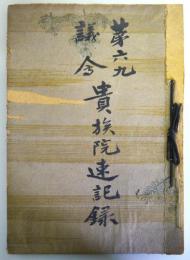 第六九
議会貴族院速記録